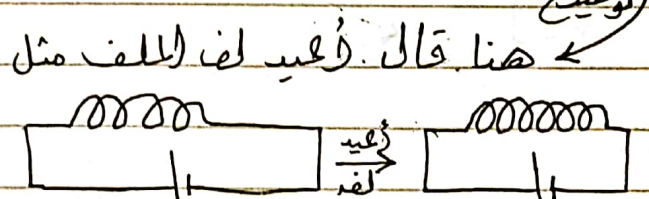 توضيح
هنا قال. أُعيد لف الملف مثل
أُعيد
لفه